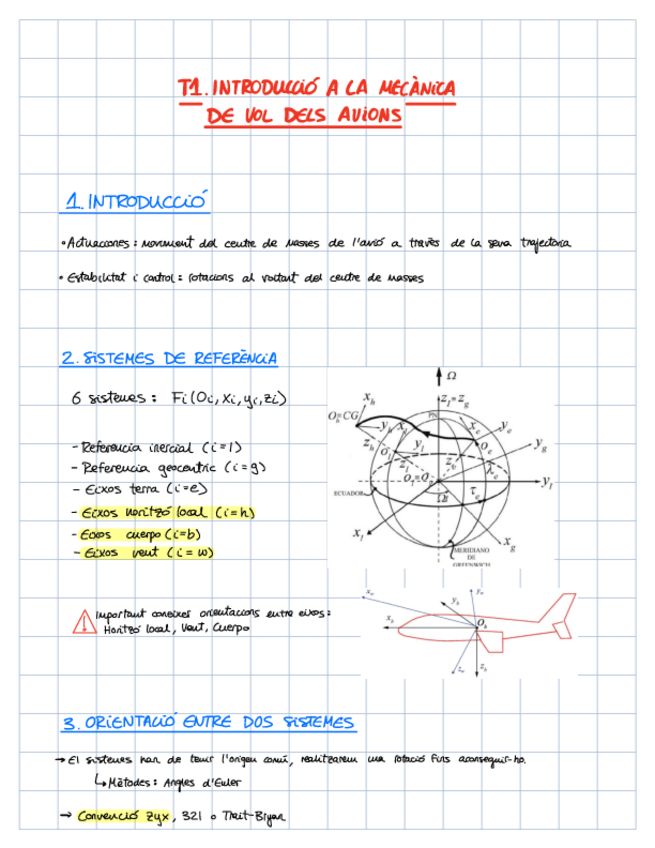 T1. INTRODUCCIÓ A LA MECÀNICA
DE VOL DELS AVIONS
1. INTRODUCCIÓ
• Actuaciones: moviment del centre de masses de l'avió a través de la seva trajectoria
• Estabilitat i control: rotacions al voltant del centre de masses
2. SISTEMES DE REFERÈNCIA
6 sistemes: Fi (Oi, xi, yi, zi)
- Referencia inercial (i=I)
- Referencia geocentric (i=g)
- Eixos terra (i=e)
- Eixos horitzó local (i=h)
- Eixos cuerpo (i=b)
- Eixos vent (i=w)
Ω
zI=zg
PN
xh
Oh=CG
yh
zh
xl
Ol
yl
zl
xe
ye
Oe
ze
λe
yg
OI=Og
ECUADOR
Ωt
τe
yI
xI
xg
MERIDIANO
DE
GREENWICH
! Important conèixer orientacions entre eixos:
Horitzó local, Vent, Cuerpo
xw
yw
yh
xh
Oh
zw
zh
3. ORIENTACIÓ ENTRE DOS SISTEMES
→ El sistemes han de tenir l'origen comú, realitzarem una rotació fins aconseguir-ho.
↳ Mètodes: Angles d'Euler
→ Convenció zyx, 321 o Trait-Bryan